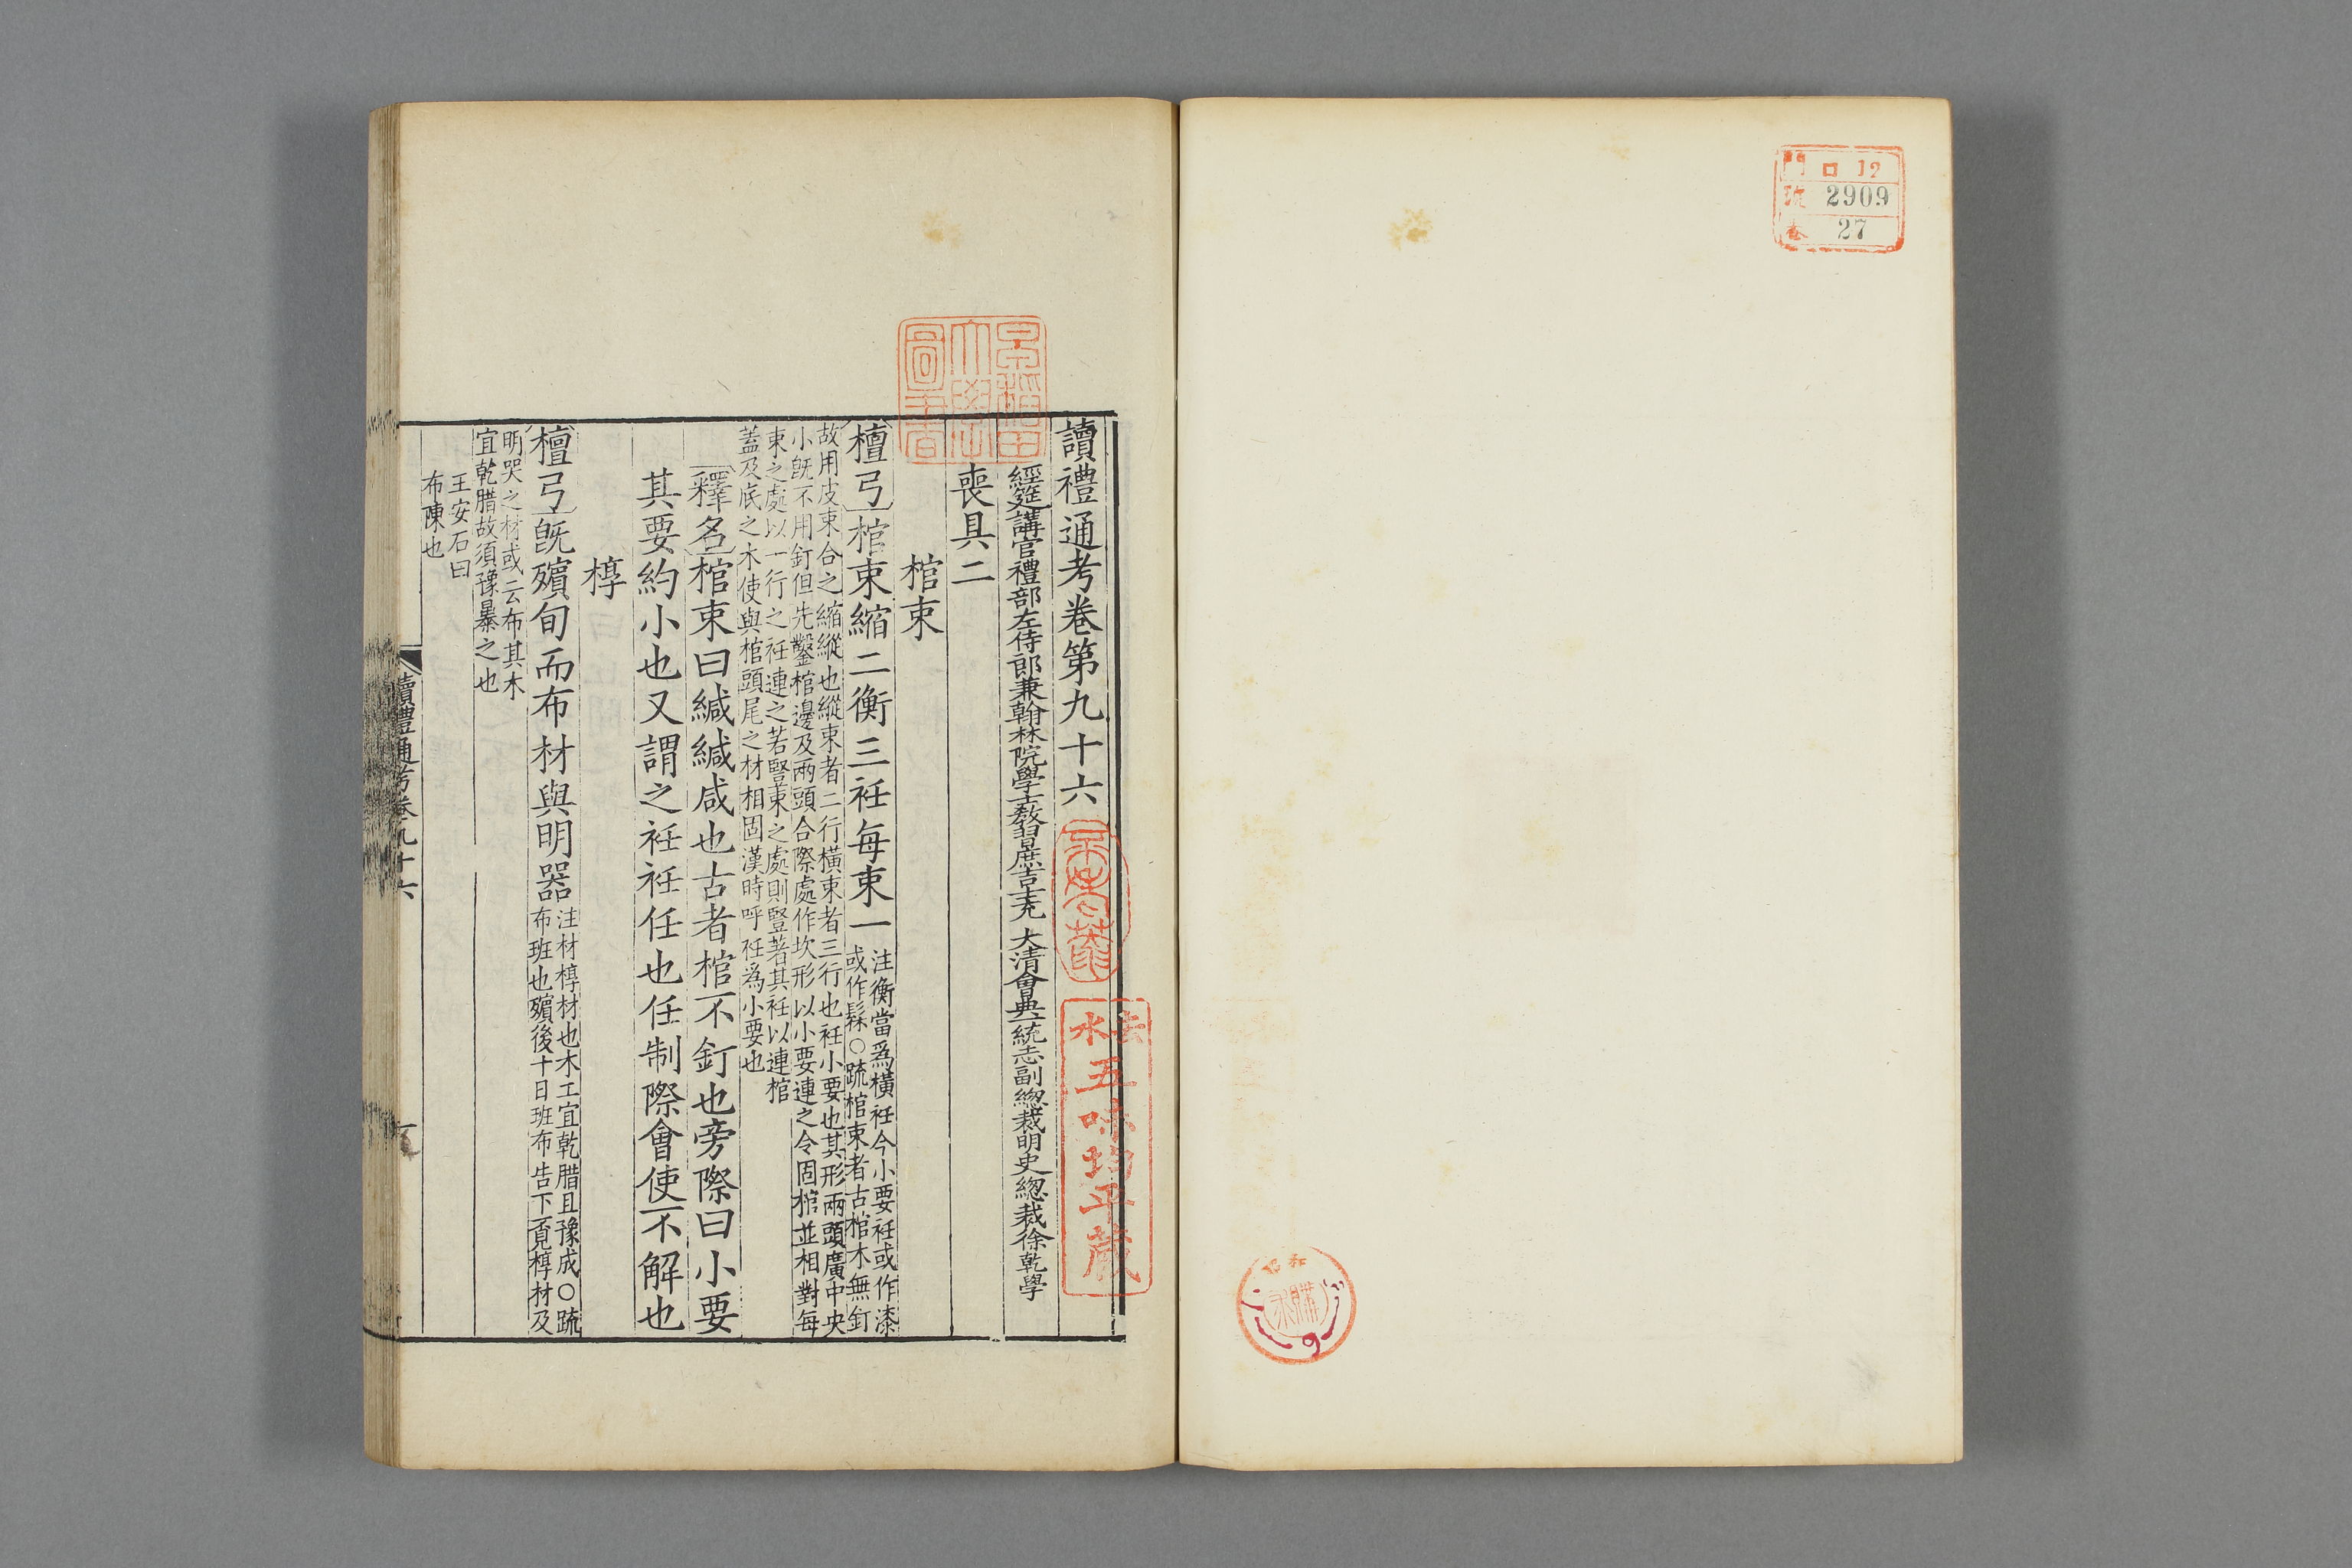 門 口 12
號 2909
卷 27
購求
早稲田
大學
圖書
讀禮通考卷第九十六
經筵講官禮部左侍郎兼翰林院學士教習庶吉士充 大清會典一統志副總裁明史總裁徐乾學
水五味均平蔵
喪具二
棺束
檀弓棺束縮二衡三衽每束一
注衡當爲橫衽今小要衽或作漆
或作髹○疏棺束者古棺木無釘
故用皮束合之縮縱也縱束者二行橫束者三行也衽小要也其形兩頭廣中央
小旣不用釘但先鑿棺邊及兩頭合際處作坎形以小要連之令固棺並相對每
束之處以一行之衽連之若豎束之處則豎著其衽以連棺
蓋及底之木使與棺頭尾之材相固漢時呼衽爲小要也
釋名棺束曰緘緘咸也古者棺不釘也旁際曰小要
其要約小也又謂之衽衽任也任制際會使不解也
椁
檀弓旣殯旬而布材與明器
注材椁材也木工宜乾腊且豫成○疏
布班也殯後十日班布告下覓椁材及
明哭之材或云布其木
宜乾腊故須豫暴之也
王安石曰
布陳也
讀禮通考卷九十六
一